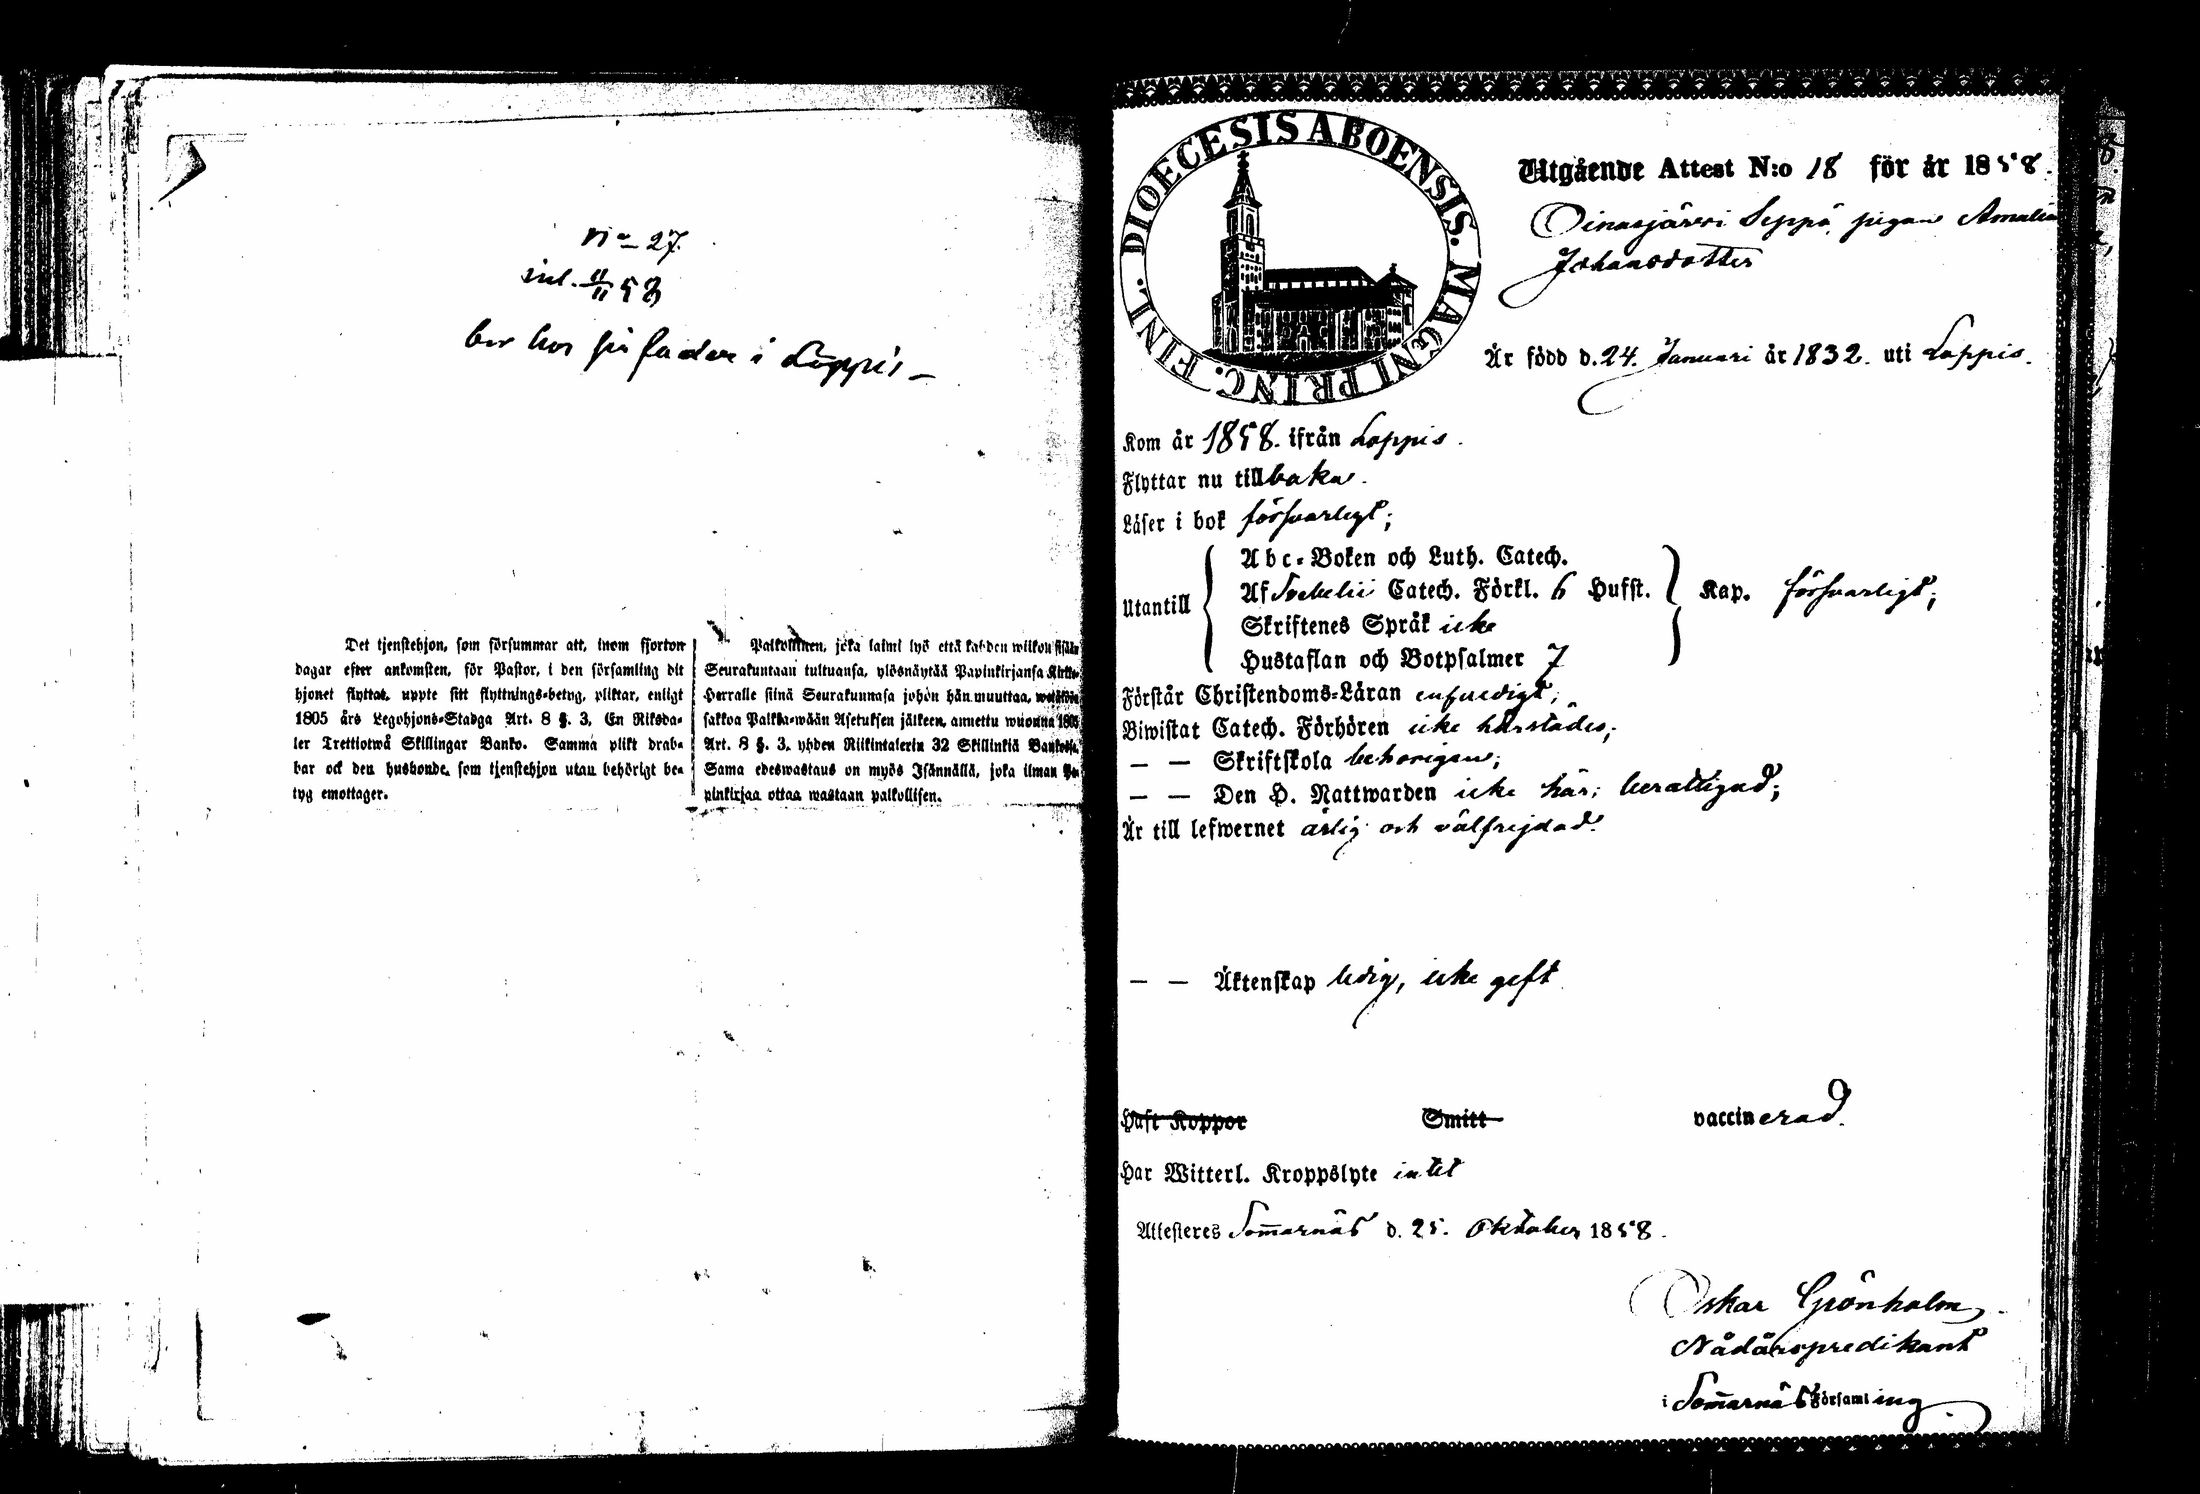 No 27.
inl. 11/11 58
bor hos sin fader i Loppis –
Det tjenstehjon, som försummar att, inom fjorton
dagar efter ankomsten, för Pastor, i den församling dit
hjonet flyttat, uppte sitt flyttnings-betyg, pliktar, enligt
1805 års Legohjons-Stadga Art. 8 §. 3, En Riksda-
ler Trettiotwå Skillingar Banko. Samma plikt drab-
bar ock den husbonde, som tjenstehjon utan behörigt be-
tyg emottager.
Palkollinen, joka laimi lyö että kahden wiikon sisään
Seurakuntaan tultuansa, ylösnäyttää Papinkirjansa Kirkko-
Herralle siinä Seurakunnasa johon hän muuttaa,
sakkoa Palkka-wään Asetuksen jälkeen, annettu wuonna 1805
Art. 8 §. 3. yhden Riikintalerin 32 Skillinkiä Bankosa.
Sama edeswastaus on myös Isännällä, joka ilman Pa-
pinkirjaa ottaa wastaan palkollisen.
DIOECESIS ABOENSIS. MAGNI PRINC. FINL.
Utgående Attest N:o 18 för år 1858.
Oinasjärvi Seppä, pigan Amalia
Johansdotter
Är född d. 24. Januari år 1832. uti Loppis.
Kom år 1858. ifrån Loppis.
Flyttar nu tillbaka.
Läser i bok försvarligt;
Utantill
Abc-Boken och Luth. Catech.
Af Svebelii Catech. Förkl. 6 Hufst.
Skriftenes Språk icke
Hustaflan och Botpsalmer 7
Kap. försvarligt;
Förstår Christendoms-Läran enfaldigt;
Biwistat Catech. Förhören icke härstädes;
— — Skriftskola behörigen;
— — Den H. Nattwarden icke här; berättigad;
Är till lefwernet ärlig och välfrejdad.
— — Äktenskap ledig, icke gift
Haft Koppor Smitt vaccinerad.
Har Witterl. Kroppslyte intet
Attesteres Som̄arnäs d. 25. Oktober 1858.
Oskar Grönholm.
Nådårspredikant
i Som̄arnäs Församling.